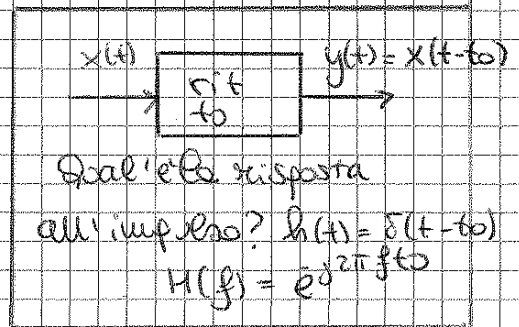 x(t)
y(t) = x(t-to)
rit
to
Qual'è la risposta
all'impulso? h(t) = δ(t-to)
H(f) = e^-j2πfto